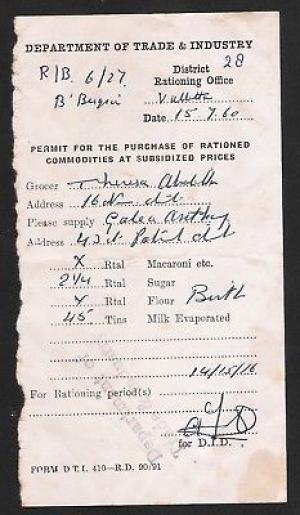 DEPARTMENT OF TRADE & INDUSTRY
R/B. 6/27 District 28
Rationing Office
B'Bugia Valletta
Date 15.7.60
PERMIT FOR THE PURCHASE OF RATIONED
COMMODITIES AT SUBSIDIZED PRICES
Grocer Theresa
Address 16
Please supply Galea Anthony
Address 43 St. Patrick
X Rtal Macaroni etc.
2 1/4 Rtal Sugar
X Rtal Flour Birth
45 Tins Milk Evaporated
14/15/16
For Rationing period(s)
for D.I.D.
Department of
FORM D T.I. 410—R.D. 90/91